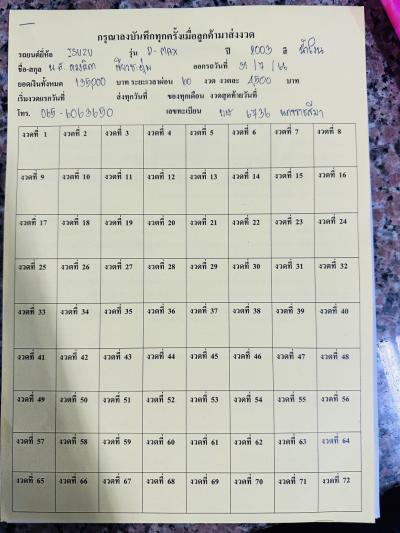 กรุณาลงบันทึกทุกครั้งเมื่อลูกค้ามาส่งงวด
รถยนต์ยี่ห้อ ISUZU รุ่น D-MAX ปี 2003 สี น้ำเงิน
ชื่อ-สกุล น.ส. ออกรถวันที่ 31/7/66
ยอดเงินทั้งหมด 135,000 บาท ระยะเวลาผ่อน 60 งวด งวดละ 4500 บาท
เริ่มงวดแรกวันที่ ส่งทุกวันที่ ของทุกเดือน งวดสุดท้ายวันที่
โทร. 065-6063650 เลขทะเบียน 6736 นครราชสีมา
งวดที่ 1 งวดที่ 2 งวดที่ 3 งวดที่ 4 งวดที่ 5 งวดที่ 6 งวดที่ 7 งวดที่ 8
งวดที่ 9 งวดที่ 10 งวดที่ 11 งวดที่ 12 งวดที่ 13 งวดที่ 14 งวดที่ 15 งวดที่ 16
งวดที่ 17 งวดที่ 18 งวดที่ 19 งวดที่ 20 งวดที่ 21 งวดที่ 22 งวดที่ 23 งวดที่ 24
งวดที่ 25 งวดที่ 26 งวดที่ 27 งวดที่ 28 งวดที่ 29 งวดที่ 30 งวดที่ 31 งวดที่ 32
งวดที่ 33 งวดที่ 34 งวดที่ 35 งวดที่ 36 งวดที่ 37 งวดที่ 38 งวดที่ 39 งวดที่ 40
งวดที่ 41 งวดที่ 42 งวดที่ 43 งวดที่ 44 งวดที่ 45 งวดที่ 46 งวดที่ 47 งวดที่ 48
งวดที่ 49 งวดที่ 50 งวดที่ 51 งวดที่ 52 งวดที่ 53 งวดที่ 54 งวดที่ 55 งวดที่ 56
งวดที่ 57 งวดที่ 58 งวดที่ 59 งวดที่ 60 งวดที่ 61 งวดที่ 62 งวดที่ 63 งวดที่ 64
งวดที่ 65 งวดที่ 66 งวดที่ 67 งวดที่ 68 งวดที่ 69 งวดที่ 70 งวดที่ 71 งวดที่ 72